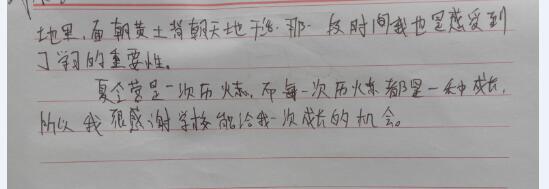 地里，面朝黄土背朝天地干活。那一段时间我也是感受到
了学习的重要性。
夏令营是一次历炼，而每一次历炼都是一种成长，
所以我很感谢学校能给我一次成长的机会。